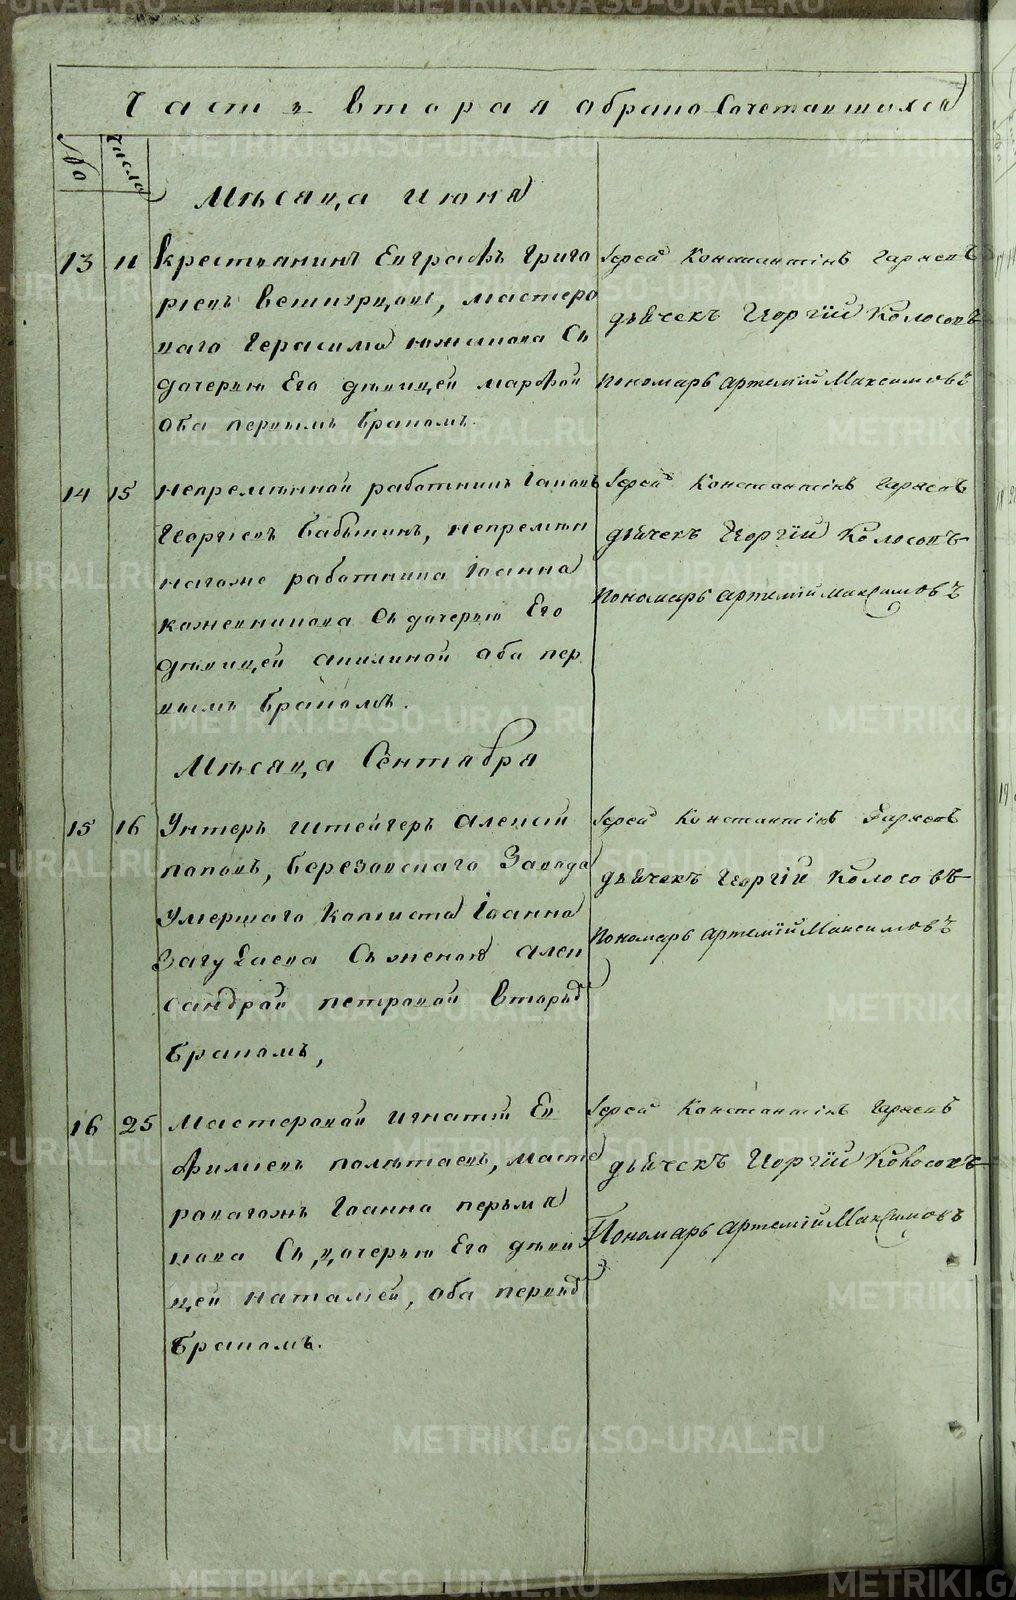 Часть вторая о бракосочетавшихся
№
Числа
Мѣсяца июня
13 11 Крестьянинъ Евграфъ Григо
рьевъ, мастеро
ваго Герасима Южакова Съ
дочерью Его дѣвицей марфой
оба первымъ бракомъ.
Іерей Константінъ Гаряевъ
дьячекъ Георгій Колосовъ
пономарь артемій Максимовъ
14 15 непремѣнной работникъ
Георгіевъ Бабыкинъ, непремѣн
нагоже работника Іоанна
кожевникова Съ дочерью Его
дѣвицей акилиной оба пер
вымъ бракомъ.
Іерей Константінъ Гаряевъ
дьячекъ Георгій Колосовъ
пономарь артемій максимовъ
Мѣсяца Сентября
15 16 Унтеръ штейгеръ алексій
поповъ, березовскаго Завода
умершаго Копеиста Іоанна
Съ женою алек
сандрой петровой вторы
бракомъ,
Іерей Константінъ Гаряевъ
дьячекъ Георгій Колосовъ
пономарь артемій Максимовъ
16 25 Мастеровой игнатій Ев
фимьевъ полѣтаевъ, масте
ровагожъ Іоанна пермя
кова Съ дочерью Его дѣви
цей наталіей, оба первы
бракомъ.
Іерей Константінъ Гаряевъ
дьячекъ Георгій Колосовъ
Пономарь артемій Максимовъ
METRIKI.GASO-URAL.RU